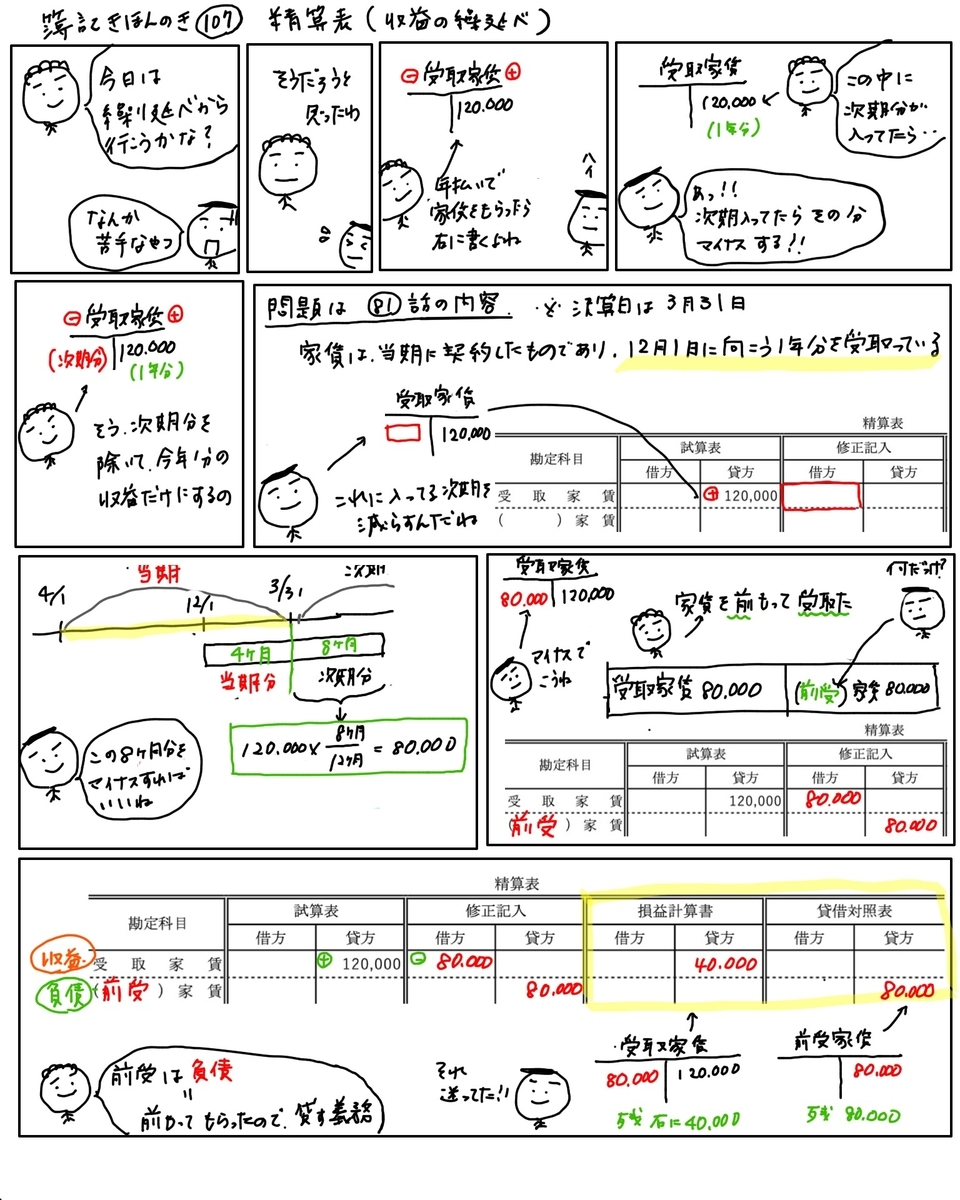 簿記きほんのき 107 精算表(収益の繰延べ)
今日は
繰り延べから
行こうかな?
なんか
苦手なやつ
そうだろうと
思ったわ
⊖ 受取家賃 ⊕
120.000
年払いで
家賃をもらったら
右に書くよね
ハイ
受取家賃
120,000
(1年分)
この中に
次期分が
入ってたら‥
あっ!!
次期入ってたら その分
マイナス する!!
⊖ 受取家賃 ⊕
(次期分) 120.000
(1年分)
そう、次期分を
除いて、今年分の
収益だけにするの
問題は 81 話の内容. ※ 決算日は 3月31日
家賃は、当期に契約したものであり、12月1日に向こう1年分を受取っている
受取家賃
120,000
これに入ってる次期を
減らすんだね
精算表
勘定科目 試算表 修正記入
借方 貸方 借方 貸方
受取家賃 ⊕ 120,000
( )家賃
当期 次期
4/1 12/1 3/31
4ヶ月 8ヶ月
当期分 次期分
120.000 × 8ヶ月/12ヶ月 = 80.000
この8ヶ月分を
マイナスすれば
いいね
受取家賃
80.000 120,000
マイナスで
こうね
家賃を前もって受取た
何だっけ?
受取家賃 80.000 (前受)家賃 80.000
精算表
勘定科目 試算表 修正記入
借方 貸方 借方 貸方
受取家賃 120,000 80.000
(前受)家賃 80.000
精算表
勘定科目 試算表 修正記入 損益計算書 貸借対照表
借方 貸方 借方 貸方 借方 貸方 借方 貸方
収益 受取家賃 ⊕ 120,000 ⊖ 80.000 40.000
負債 (前受)家賃 80.000 80.000
前受は 負債
〃
前もって もらったので、貸す義務
それ
送ってた!!
受取家賃
80.000 120.000
残 右に 40,000
前受家賃
80.000
残 80.000